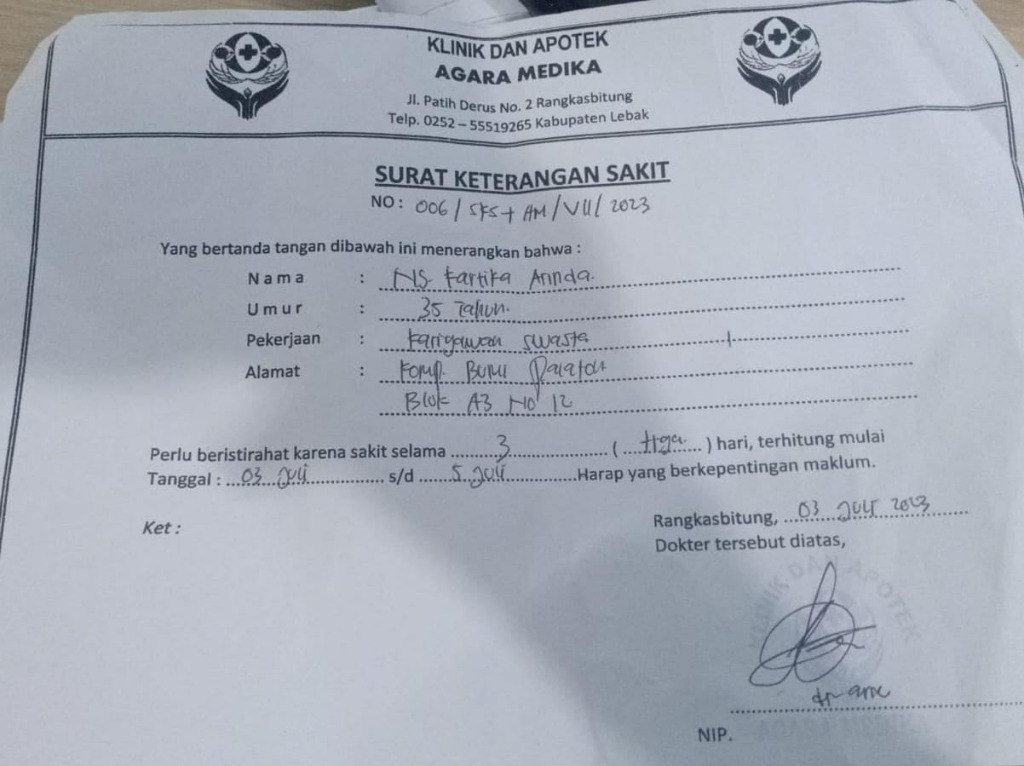 KLINIK DAN APOTEK
AGARA MEDIKA
Jl. Patih Derus No. 2 Rangkasbitung
Telp. 0252 – 55519265 Kabupaten Lebak
SURAT KETERANGAN SAKIT
NO : 006 / SKS + AM / VII / 2023
Yang bertanda tangan dibawah ini menerangkan bahwa :
Nama : Kartika
Umur : 35 Tahun.
Pekerjaan : Kariyawan swasta
Alamat : Komp. Bumi
Blok A3 No 12
Perlu beristirahat karena sakit selama 3 ( tiga ) hari, terhitung mulai
Tanggal : 03 Juli s/d 5 Juli Harap yang berkepentingan maklum.
Ket :
Rangkasbitung, 03 Juli 2023
Dokter tersebut diatas,
KLINIK DAN APOTEK
dr
NIP.